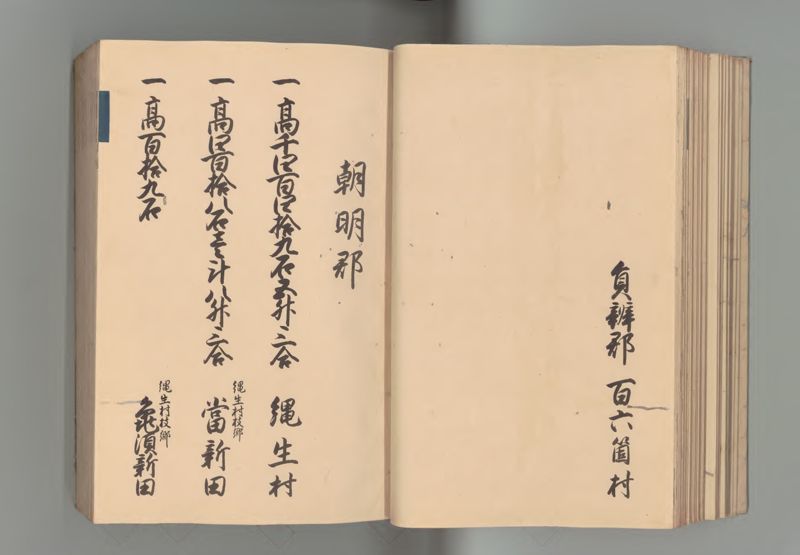 員辨郡 百六箇村
朝明郡
一高千四百四拾九石五升二合 縄生村
一高四百拾八石壱斗八升二合 縄生村枝郷 當新田
一高百拾九石 縄生村枝郷 亀須新田